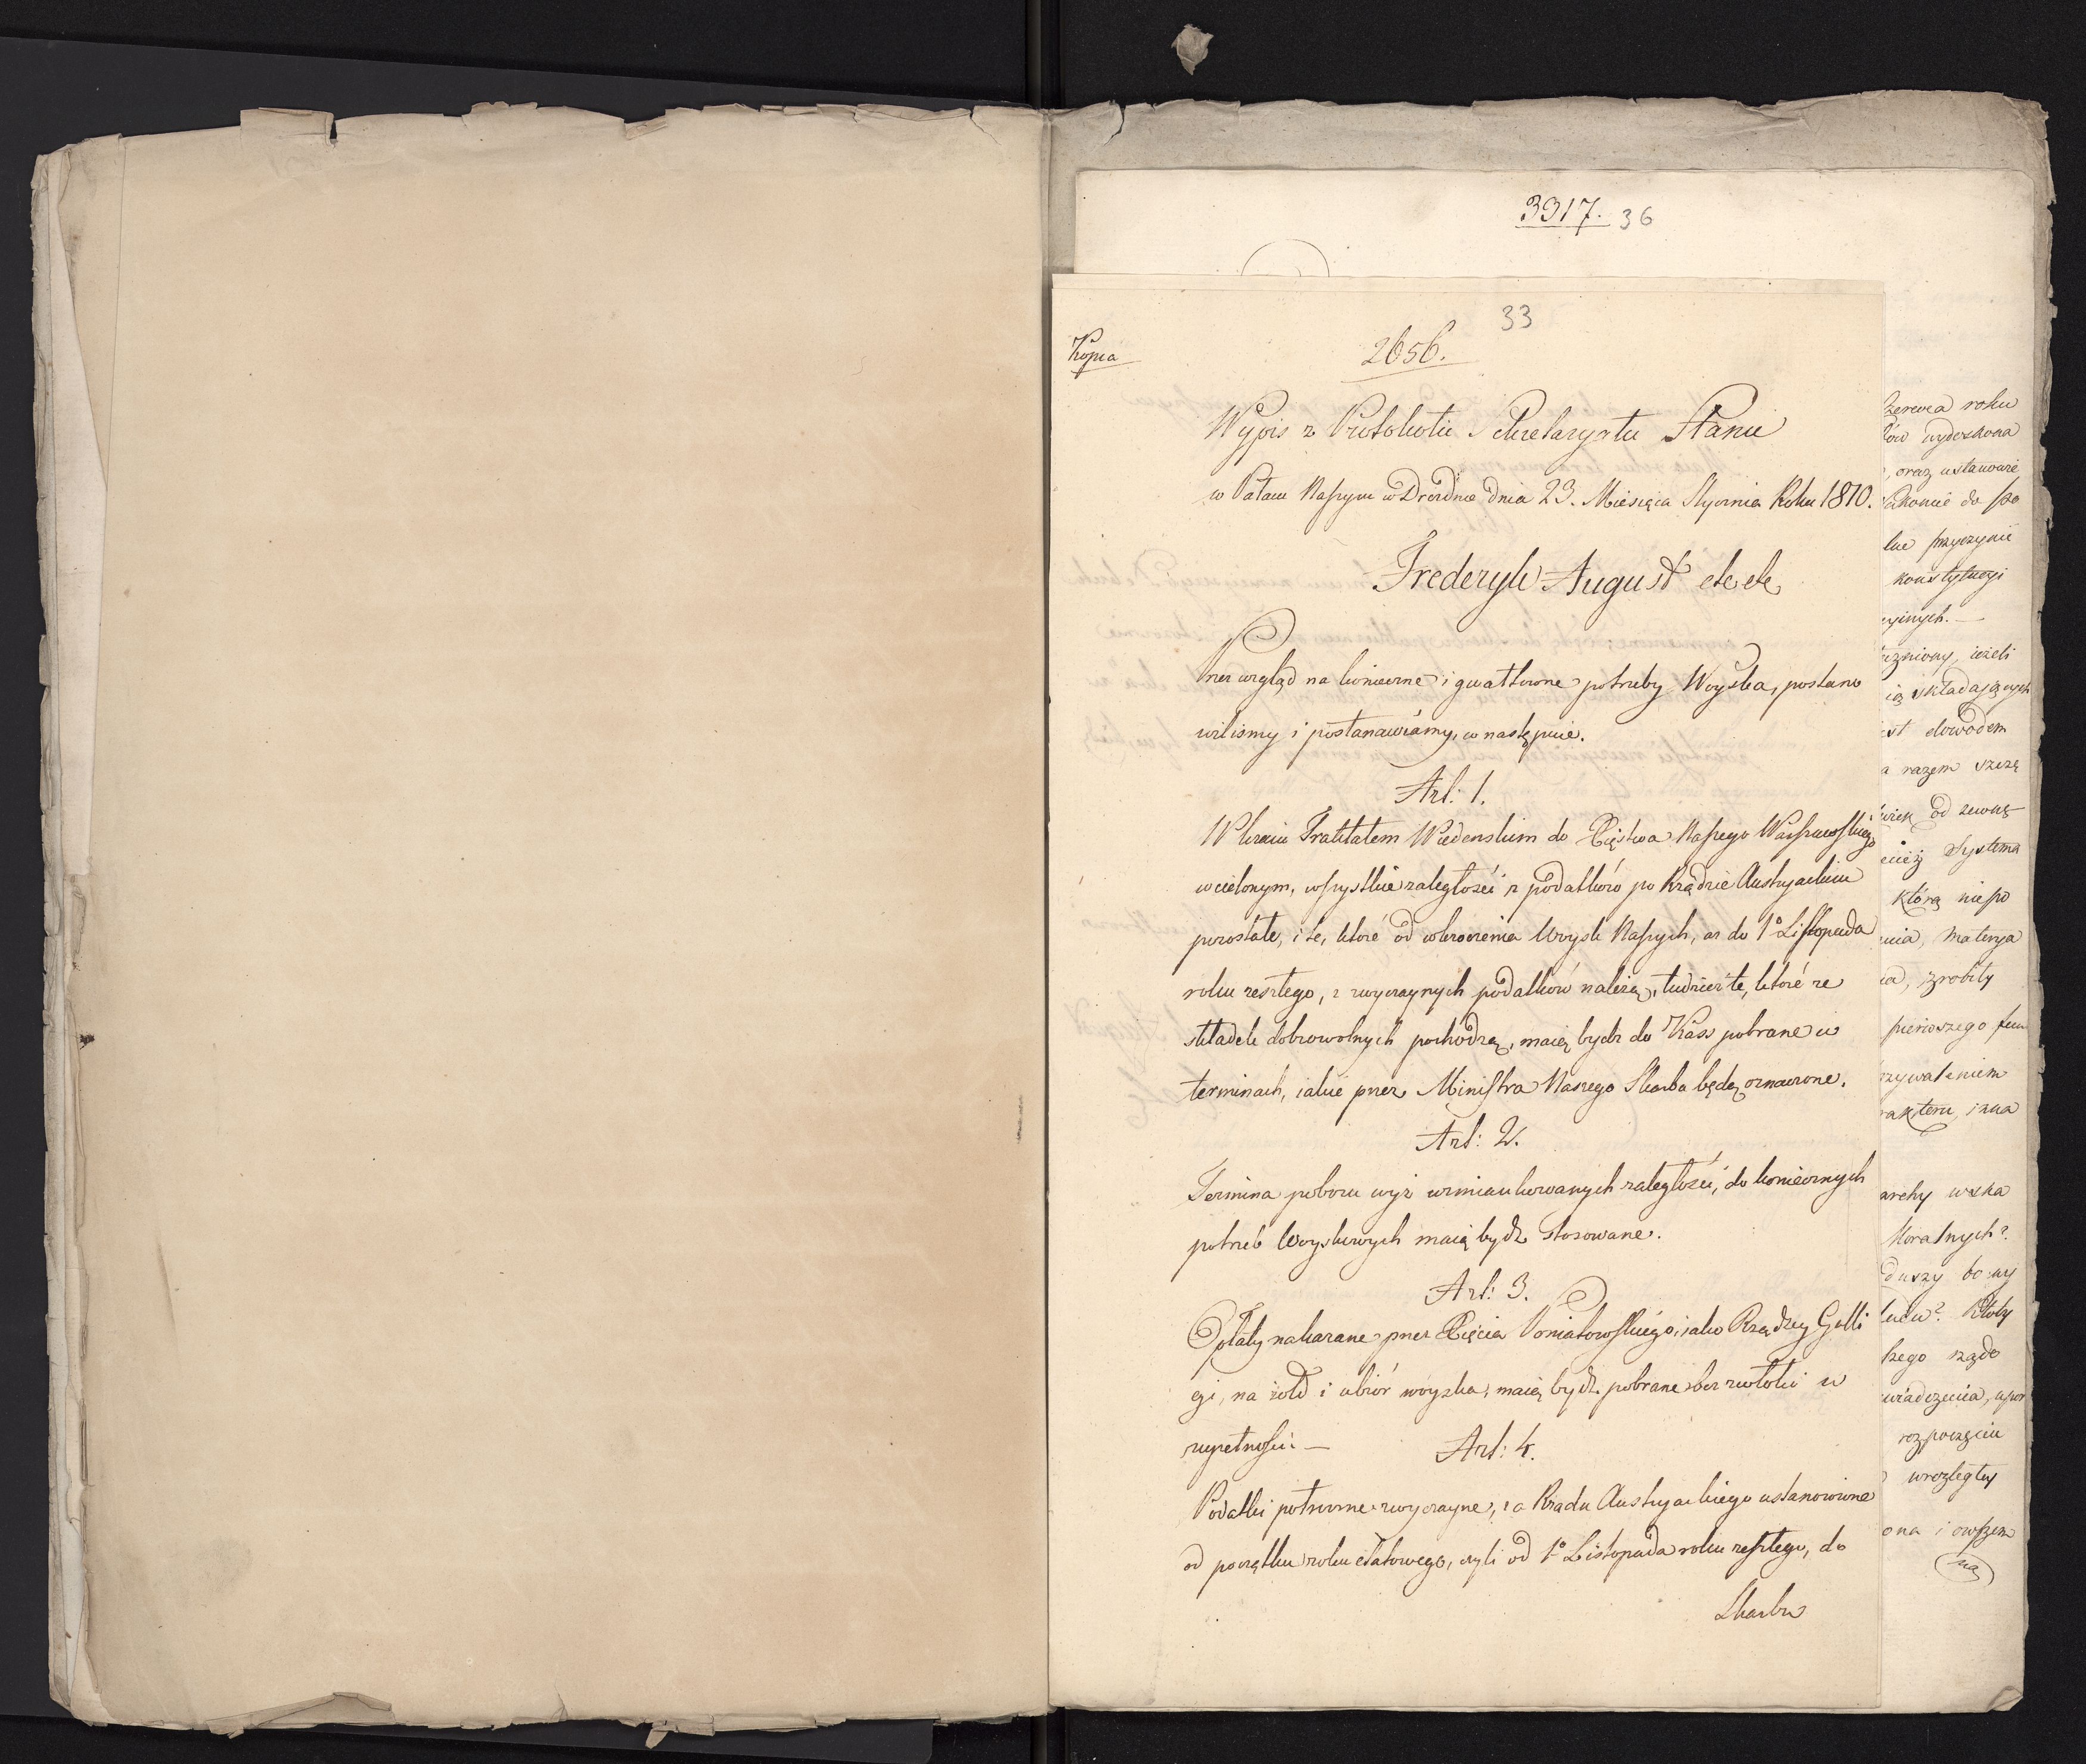 3917. 36
33
Kopia
2656.
Wypis z Protokołu Sekretaryatu Stanu
w Pałacu Naszym w Dreźnie dnia 23. Miesiąca Stycznia Roku 1810.
Frederyk August etc etc
Przez wzgląd na konieczne i gwałtowne potrzeby Woyska, postano
wiliśmy i postanawiamy, co następuie.
Art: 1.
W kraiu Traktatem Wiedenskim do Xięstwa Naszego Warszawskiego
wcielonym, wszystkie zaległości z podatków po Rządzie Austryackim
pozostałe, i te, które od wkroczenia Woysk Naszych, az do 1o Listopada
roku zeszłego, z zwyczaynych podatków należą, tudzież te, które ze
składek dobrowolnych pochodzą, maią bydz do Kass pobrane w
terminach, iakie przez Ministra Naszego Skarbu będą oznaczone.
Art: 2.
Termina poboru wyż wzmiankowanych zaległości, do koniecznych
potrzeb Woyskowych maią bydź stosowane.
Art: 3.
Opłaty nakazane przez Xięcia Poniatowskiego, iako Rządzcy Galli
cyi, na żołd i ubiór woyska, maią bydź pobrane bez zwłoki w
zupełności —
Art: 4.
Podatki potrzebne zwyczayne, za Rządu Austryackiego ustanowione
od początku roku etatowego, czyli od 1o Listopada roku zeszłego, do
Skarbu
czerwca roku
oraz ustawami
do spo
przyczynić
konstytucyi
ieżeli
składających
dowodem
razem
od zewnę
Systema
którą niepo
materya
zrobiły
pierwszego
Moralnych?
duszy
rozpoczęciu
wrozległey
ona i owszem
ną